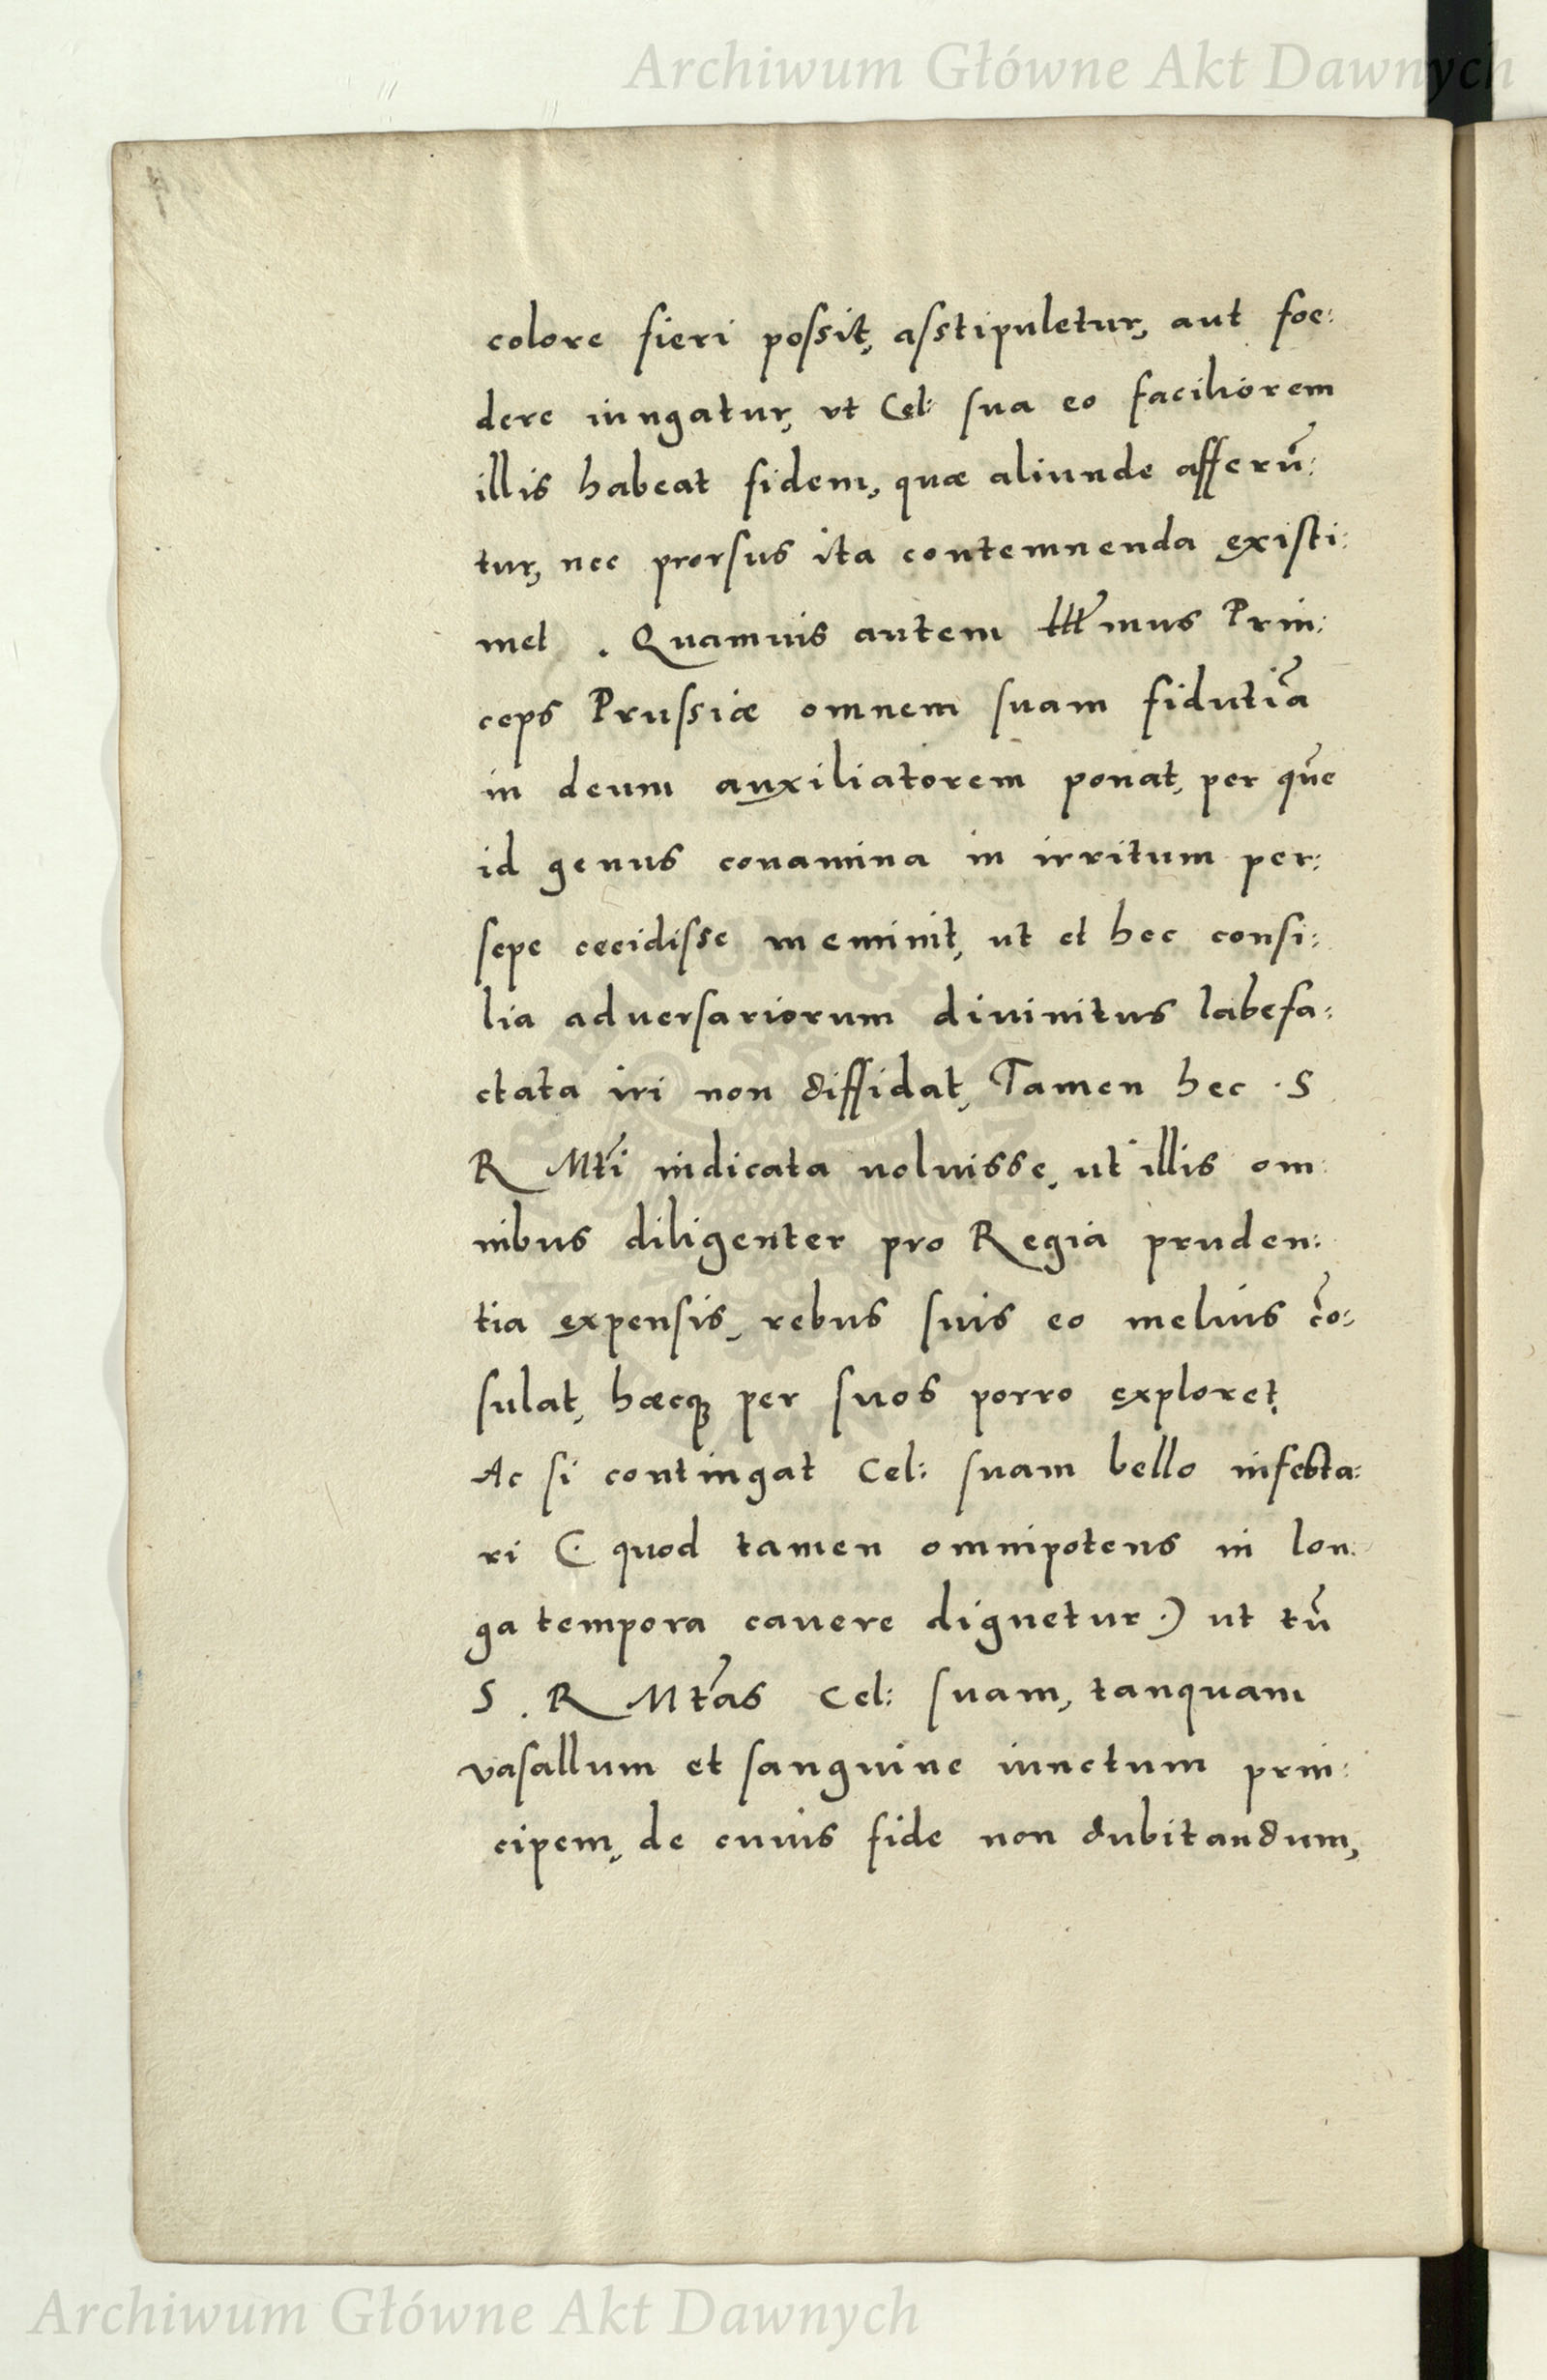 Archiwum Główne Akt Dawnych
colore fieri possit, asstipuletur, aut foe:
dere iungatur, vt Cel: sua eo faciliorem
illis habeat fidem, quæ aliunde afferũ:
tur, nec prorsus ita contemnenda existi:
met . Quamuis autem Illr̃mus Prin:
ceps Prussiæ omnem suam fidutiã
in deum auxiliatorem ponat, per quẽ
id genus conamina in irritum per:
sepe cecidisse meminit, ut et hec consi:
lia aduersariorum diuinitus labefa:
ctata iri non diffidat, Tamen hec . S
R Mtĩ indicata uoluisse, ut illis om:
nibus diligenter pro Regia pruden:
tia expensis, rebus suis eo melius cõ:
sulat, hæcq; per suos porro exploret,
Ac si contingat Cel: suam bello infesta:
ri (. quod tamen omnipotens in lon:
ga tempora cauere dignetur .) ut tũ
S . R Mtãs Cel: suam, tanquam
vasallum et sanguine iunctum prin:
cipem, de cuius fide non dubitandum,
Archiwum Główne Akt Dawnych